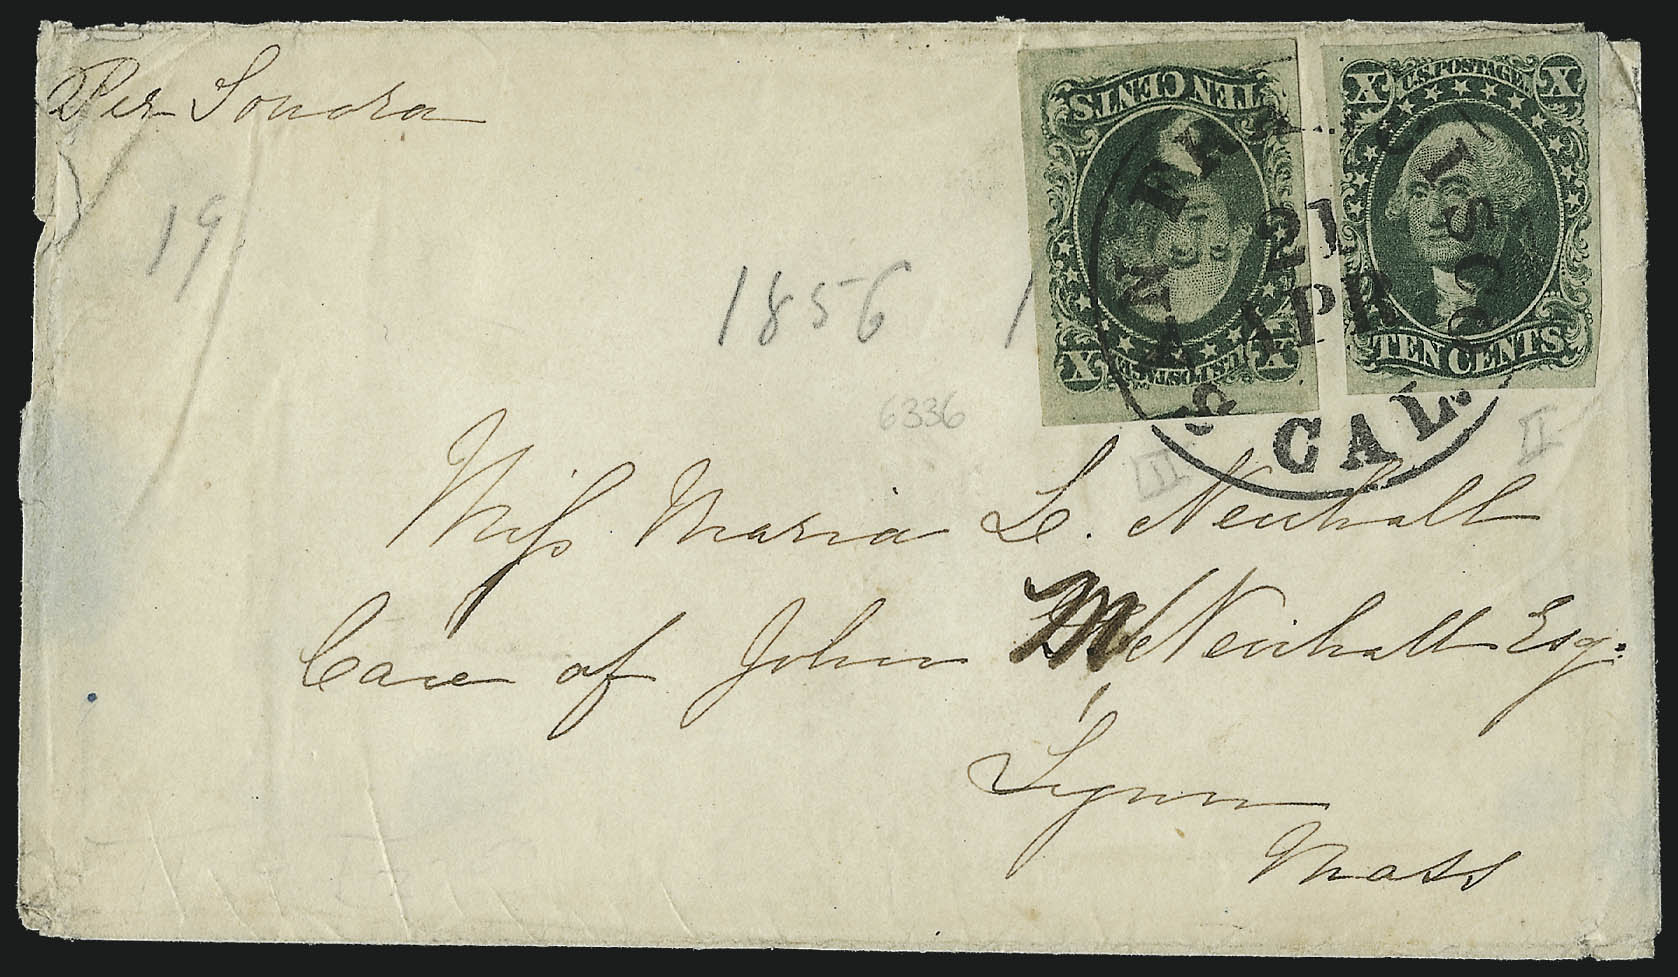 Per Sonora
19
1856 1
6336
TEN CENTS
X U.S. POSTAGE X
X U.S. POSTAGE X
TEN CENTS
SAN FRANCISCO
21
APR
CAL.
II
II
Miss Maria L. Newhall
Care of John M Newhall Esq.
Lynn
Mass